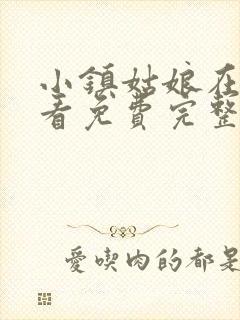 小鎮姑娘在
看免費完整
愛喫肉的都是